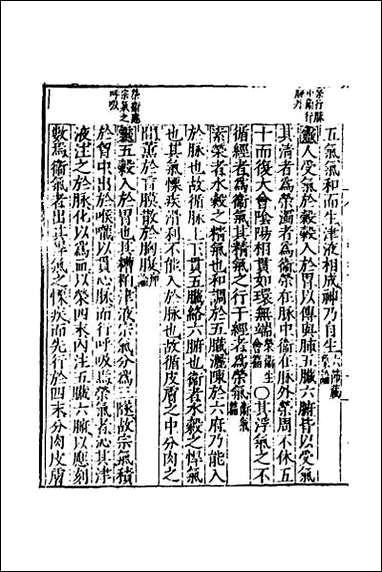 榮行脉
中衛行
脉外
五氣氣和而生津液相成神乃自生六節藏象論
靈人受氣於穀穀入於胃以傳與肺五臟六腑皆以受氣
其清者爲榮濁者爲衛榮在脉中衛在脉外榮周不休五
十而復大會陰陽相貫如環無端榮衛生會篇○其浮氣之不
循經者爲衛氣其精氣之行于經者爲榮氣衛氣篇
素榮者水穀之精氣也和調於五臟灑陳於六府乃能入
於脉也故循脉上下貫五臟絡六腑也衛者水穀之悍氣
也其氣慓疾滑利不能入於脉也故循皮膚之中分肉之
間熏於肓膜散於胸腹痹論
榮衛應
宗氣之
呼吸
靈五穀入於胃也其糟粕津液宗氣分爲三隧故宗氣積
於胷中出於喉嚨以貫心脉而行呼吸焉榮氣者泌其津
液注之於脉化以爲血以榮四末內注五臟六腑以應刻
數焉衛氣者出其悍氣之慓疾而先行於四末分肉皮膚